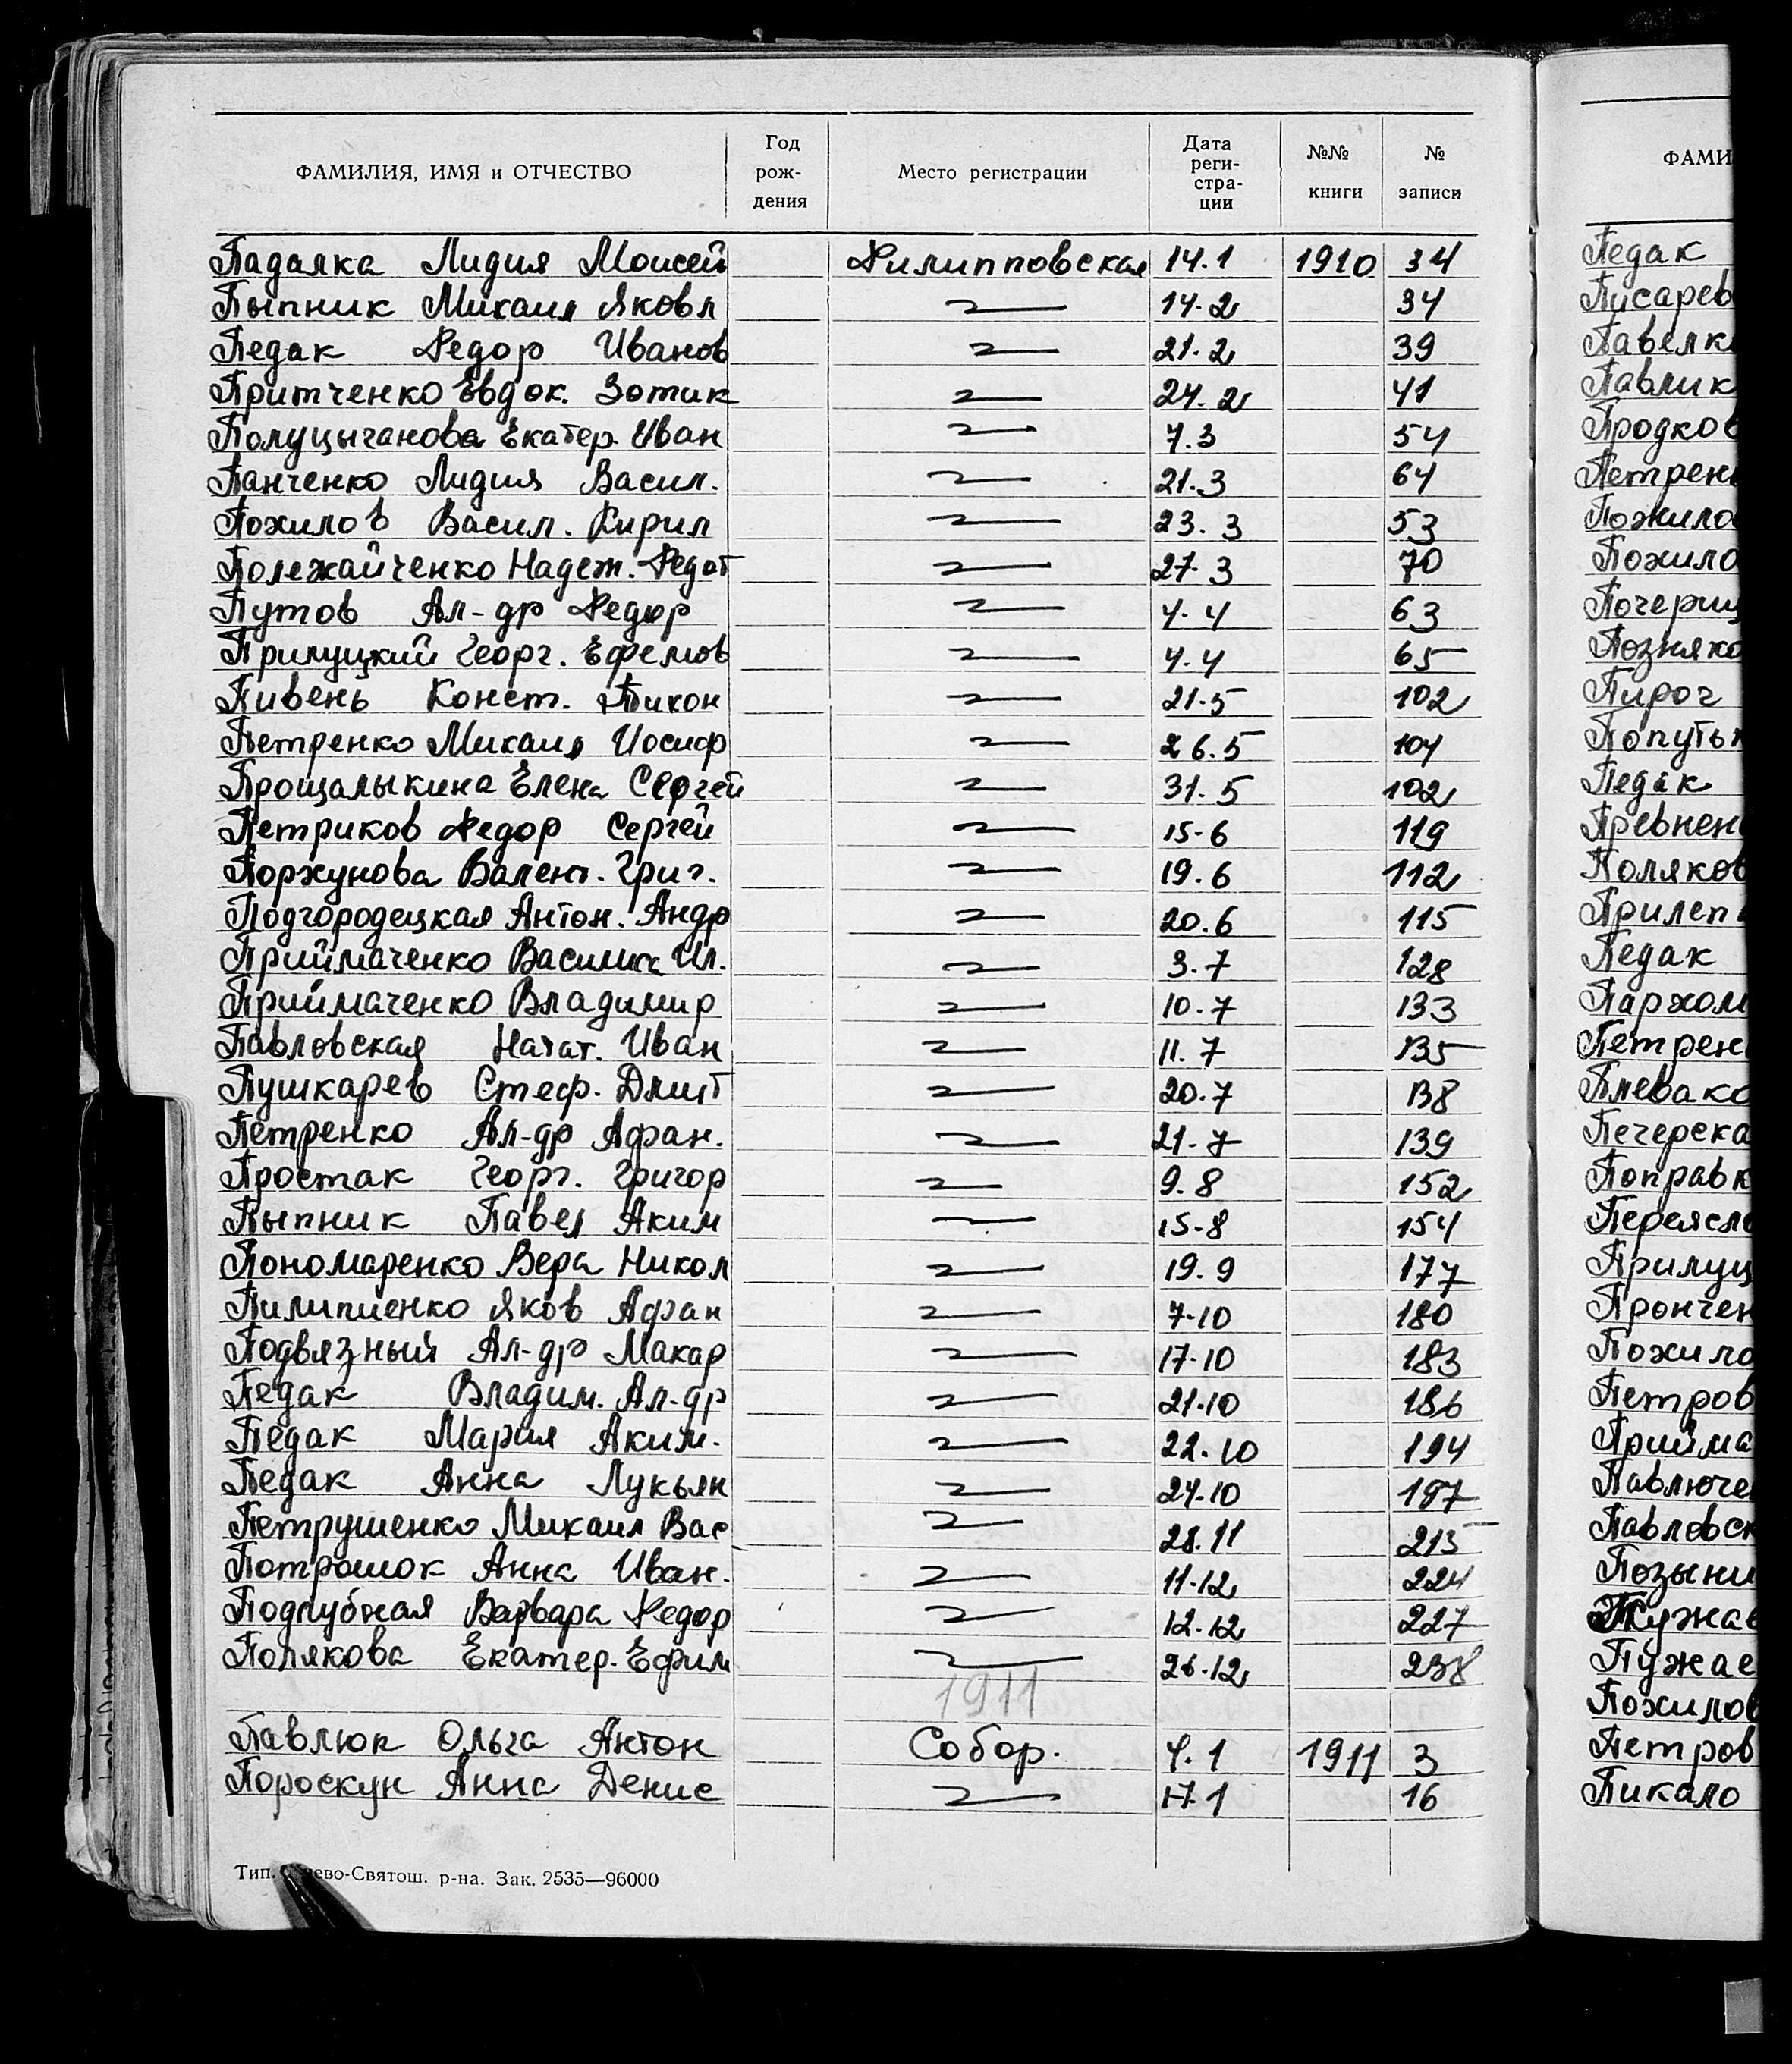 ФАМИЛИЯ, ИМЯ и ОТЧЕСТВО Год рождения Место регистрации Дата регистрации №№ книги № записи
Падалка Лидия Моисей Филипповская 14.1 1910 34
Пыпник Михаил Яковл 14.2 34
Педак Федор Иванов 21.2 39
Притченко Евдок. Зотик 24.2 41
Полуцыганова Екатер. Иван 7.3 54
Панченко Лидия Васил. 21.3 64
Пожилов Васил. Кирил 23.3 53
Полежайченко Надеж. Федот 27.3 70
Путов Ал-др Федор 4.4 63
Прилуцкий Георг. Ефемов 4.4 65
Пивень Конст. Тихон 21.5 102
Петренко Михаил Иосиф 26.5 104
Прощалыкина Елена Сергей 31.5 102
Петриков Федор Сергей 15-6 119
Поржунова Валент. Григ. 19.6 112
Подгородецкая Антон. Андр 20.6 115
Приймаченко Василиса Ил. 3.7 128
Приймаченко Владимир 10.7 133
Павловская Натат. Иван 11.7 135
Пушкарев Стеф. Дмит 20.7 138
Петренко Ал-др Афан. 21-7 139
Простак Георг. Григор 9.8 152
Пыпник Павел Аким 15-8 154
Пономаренко Вера Никол 19.9 177
Пилипиенко Яков Афан 7-10 180
Подвязный Ал-др Макар 17-10 183
Педак Владим. Ал-др 21-10 186
Педак Мария Аким. 22.10 194
Педак Анна Лукьян 24.10 197
Петрушенко Михаил Вас 28.11 215
Потрошок Анна Иван. 11-12 224
Подлубная Варвара Федор 12.12 227
Полякова Екатер. Ефим 26.12 238
1911
Павлюк Ольга Антон Собор. 4.1 1911 3
Пороскун Анна Денис 17.1 16
Тип. ево-Святош. р-на. Зак. 2535—96000
ФАМИ
Педак
Писарев
Павелк
Павлик
Продков
Петрен
Пожило
Пожило
Почерни
Позняко
Пироч
Попуть
Педак
Превнен
Поляков
Прилеп
Педак
Пархом
Петрен
Плевако
Печерска
Поправк
Переясл
Прилуц
Прончен
Пожило
Петров
Прийма
Павлюче
Павловск
Позыни
Пужае
Пожилов
Петров
Пикало